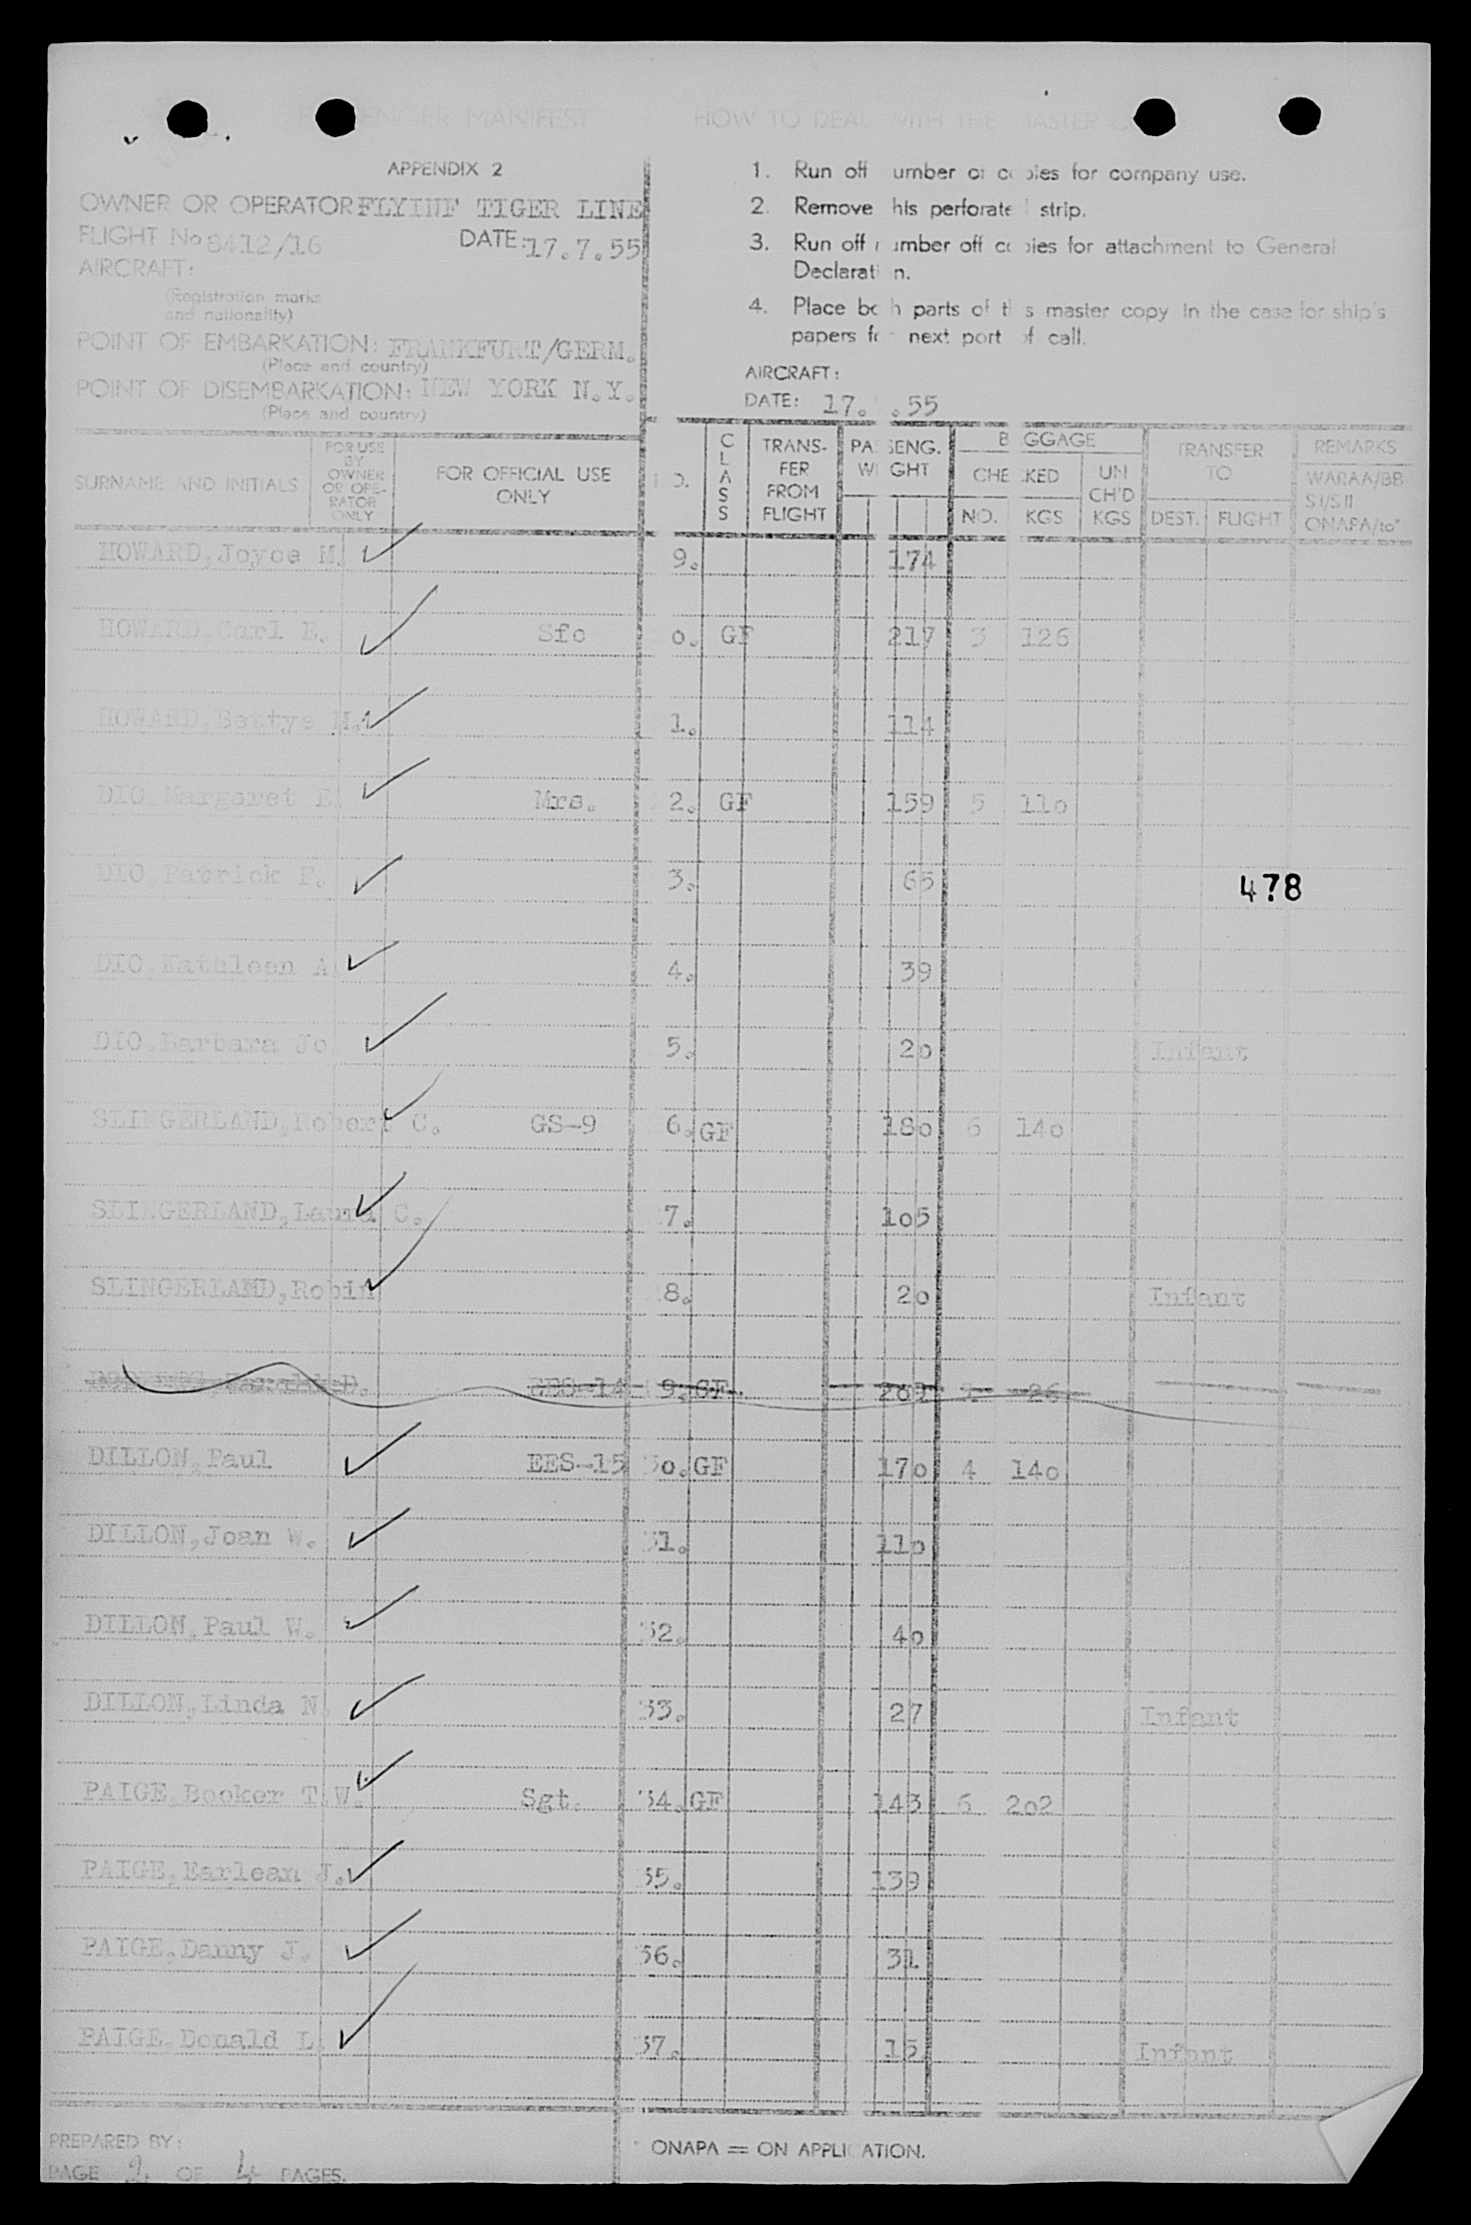 PASSENGER MANIFEST
HOW TO DEAL WITH THE MASTER
APPENDIX 2
OWNER OR OPERATOR FLYINF TIGER LINE
FLIGHT No 8412/16 DATE: 17.7.55
AIRCRAFT:
(Registration marks
and nationality)
POINT OF EMBARKATION: FRANKFURT/GERM.
(Place and country)
POINT OF DISEMBARKATION: NEW YORK N.Y.
(Place and country)
1. Run off umber of copies for company use.
2. Remove his perforate strip.
3. Run off umber off copies for attachment to General
Declarati n.
4. Place bo h parts of t s master copy in the case for ship's
papers fo next port of call.
AIRCRAFT:
DATE: 17. .55
SURNAME AND INITIALS
FOR USE
BY
OWNER
OR OPE-
RATOR
ONLY
FOR OFFICIAL USE
ONLY
O.
CLASS
TRANS-
FER
FROM
FLIGHT
PA SENG.
W GHT
B GGAGE
CHE CKED
NO. KGS
UN
CH'D
KGS
TRANSFER
TO
DEST. FLIGHT
REMARKS
WARAA/BB
SI/SII
ONAPA/to"
HOWARD, Joyce M. 9. 174
HOWARD, Carl E. Sfc o. GF 217 3 126
HOWARD, Bettye M. 1. 114
DIO, Margaret E. Mrs. 2. GF 159 5 11o
DIO, Patrick F. 3. 65
478
DIO, Kathleen A. 4. 39
DIO, Barbara Jo 5. 2o Infant
SLINGERLAND, Robert C. GS-9 6. GF 18o 6 14o
SLINGERLAND, Laura C. 7. 1o5
SLINGERLAND, Robin 8. 2o Infant
EES-14 9. GF 26
DILLON, Paul EES-15 3o. GF 17o 4 14o
DILLON, Joan W. 31. 11o
DILLON, Paul W. 32. 4o
DILLON, Linda N. 33. 27 Infant
PAIGE, Booker T.W. Sgt. 34. GF 143 6 2o2
PAIGE, Earlean J. 35. 139
PAIGE, Danny J. 36. 31
PAIGE, Donald L. 37. 15 Infant
PREPARED BY:
PAGE 2 OF 4 PAGES.
ONAPA = ON APPLICATION.